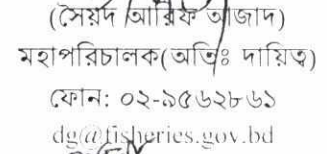 (সৈয়দ আরিফ আজাদ)
মহাপরিচালক(অতিঃ দায়িত্ব)
ফোন: ০২-৯৫৬২৮৬১
dg@fisheries.gov.bd